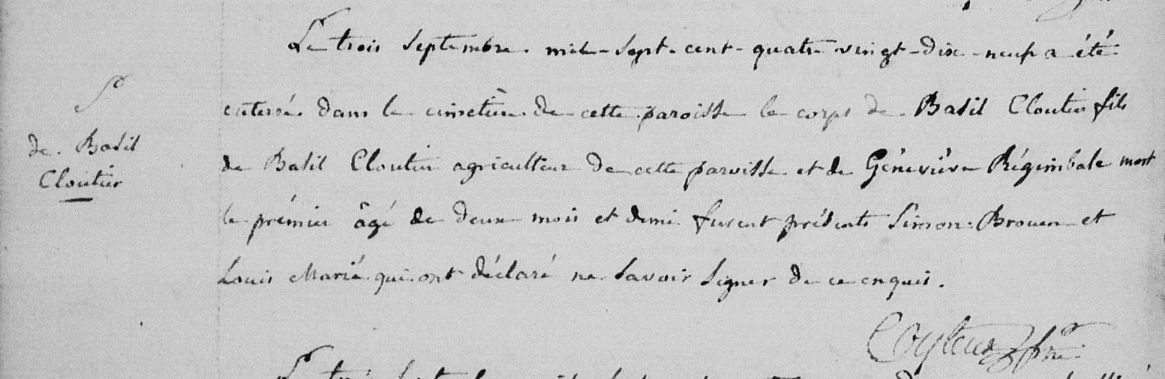 Sre
de Basil
Cloutier
Le trois Septembre mile-sept-cent-quatre vingt-dix-neuf a été
enterré dans le cimetière de cette paroisse le corps de Basil Cloutier fils
de Basil Cloutier agriculteur de cette paroisse et de Géneviève Régimbale mort
le prémier âgé de deux mois et demi furent présents Simon Brouen et
Louis Marié qui ont déclaré ne Savoir Signer de ce enquis.
ptre